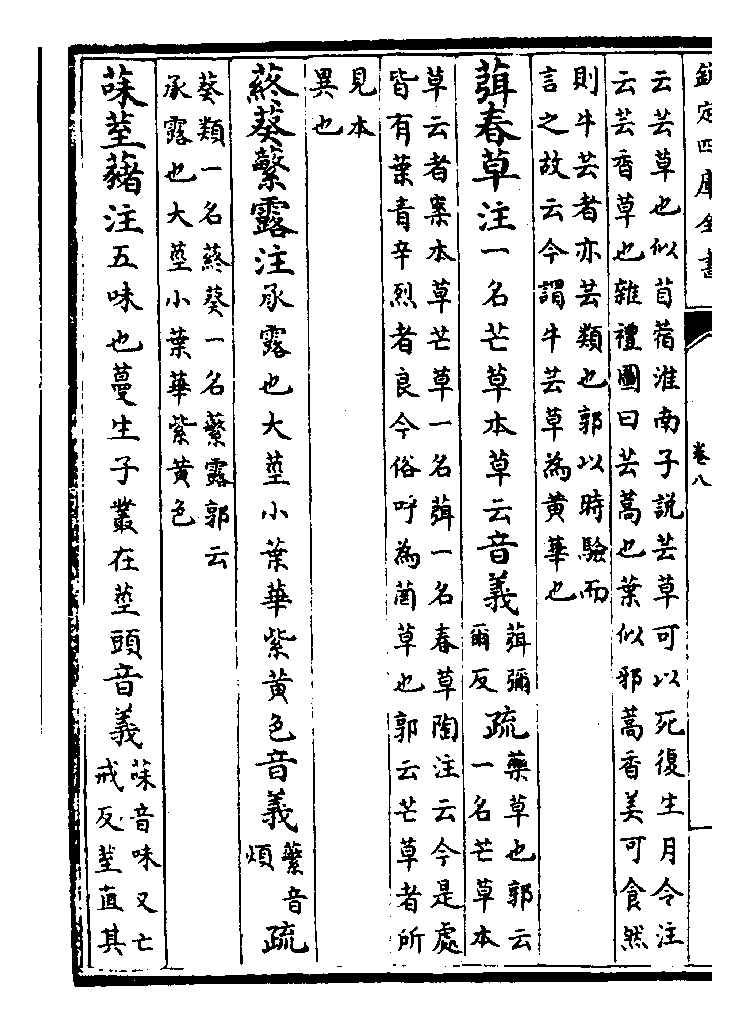 欽定四庫全書
卷八
云芸草也似苜蓿淮南子説芸草可以死復生月令注
云芸香草也雜禮圖曰芸蒿也葉似邪蒿香美可食然
則牛芸者亦芸類也郭以時驗而
言之故云今謂牛芸草為黄華也
葞春草注一名芒草本草云音義
葞彌
爾反
疏
藥草也郭云
一名芒草本
草云者案本草芒草一名葞一名春草陶注云今是處
皆有葉青辛烈者良今俗呼為𦽅草也郭云芒草者所
見本
異也
蔠葵蘩露注承露也大莖小葉華紫黄色音義
蘩音
煩
疏
葵類一名蔠葵一名蘩露郭云
承露也大莖小葉華紫黄色
菋荎藸注五味也蔓生子叢在莖頭音義
菋音味又亡
戒反荎直其